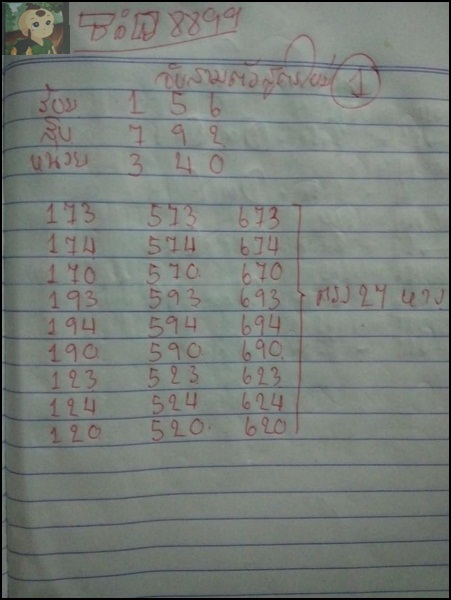 8899
จับสามตัวสูตรใหม่ 1
ร้อย 1 5 6
สิบ 7 9 2
หน่วย 3 4 0
173 573 673
174 574 674
170 570 670
193 593 693
194 594 694
190 590 690
123 523 623
124 524 624
120 520 620
ตรง 27 หาง